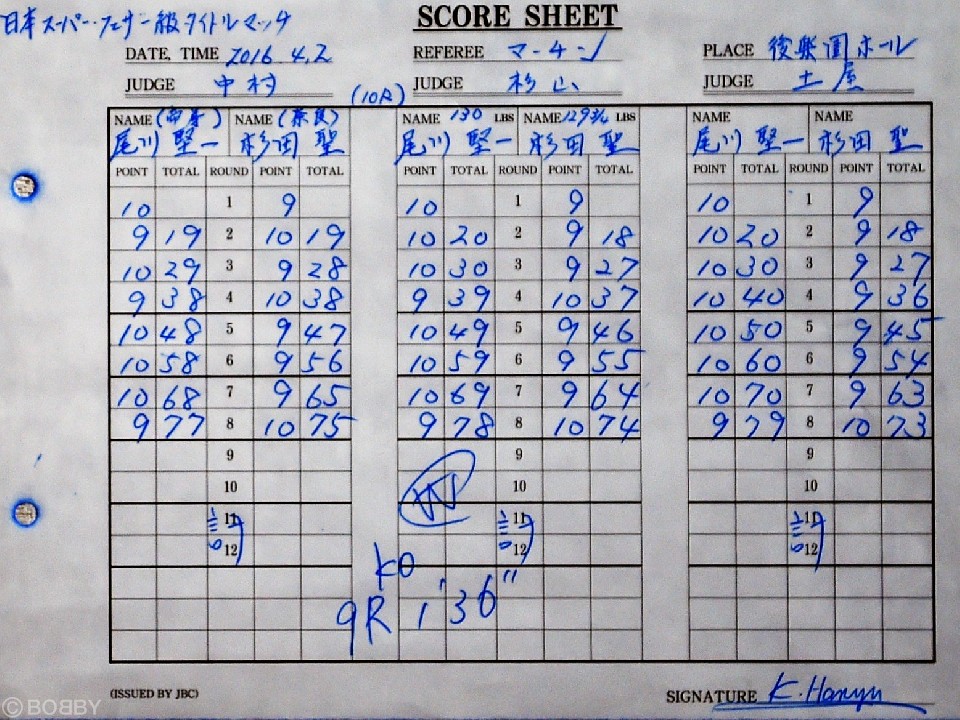 日本スーパー・フェザー級タイトルマッチ
SCORE SHEET
DATE, TIME 2016. 4. 2 REFEREE マーチン PLACE 後楽園ホール
JUDGE 中村 JUDGE 杉山 JUDGE 土屋
(10R)
NAME NAME (奈良) NAME 130 LBS NAME 129 3/4 LBS NAME NAME
尾川 堅一 杉田 聖 尾川 堅一 杉田 聖 尾川 堅一 杉田 聖
POINT TOTAL ROUND POINT TOTAL POINT TOTAL ROUND POINT TOTAL POINT TOTAL ROUND POINT TOTAL
10 1 9 10 1 9 10 1 9
9 19 2 10 19 10 20 2 9 18 10 20 2 9 18
10 29 3 9 28 10 30 3 9 27 10 30 3 9 27
9 38 4 10 38 9 39 4 10 37 10 40 4 9 36
10 48 5 9 47 10 49 5 9 46 10 50 5 9 45
10 58 6 9 56 10 59 6 9 55 10 60 6 9 54
10 68 7 9 65 10 69 7 9 64 10 70 7 9 63
9 77 8 10 75 9 78 8 10 74 9 79 8 10 73
9 9 9
10 W 10 10
11 11 11
12 12 12
KO
9R 1'36"
(ISSUED BY JBC) SIGNATURE K. Hanyu
©BOBBY